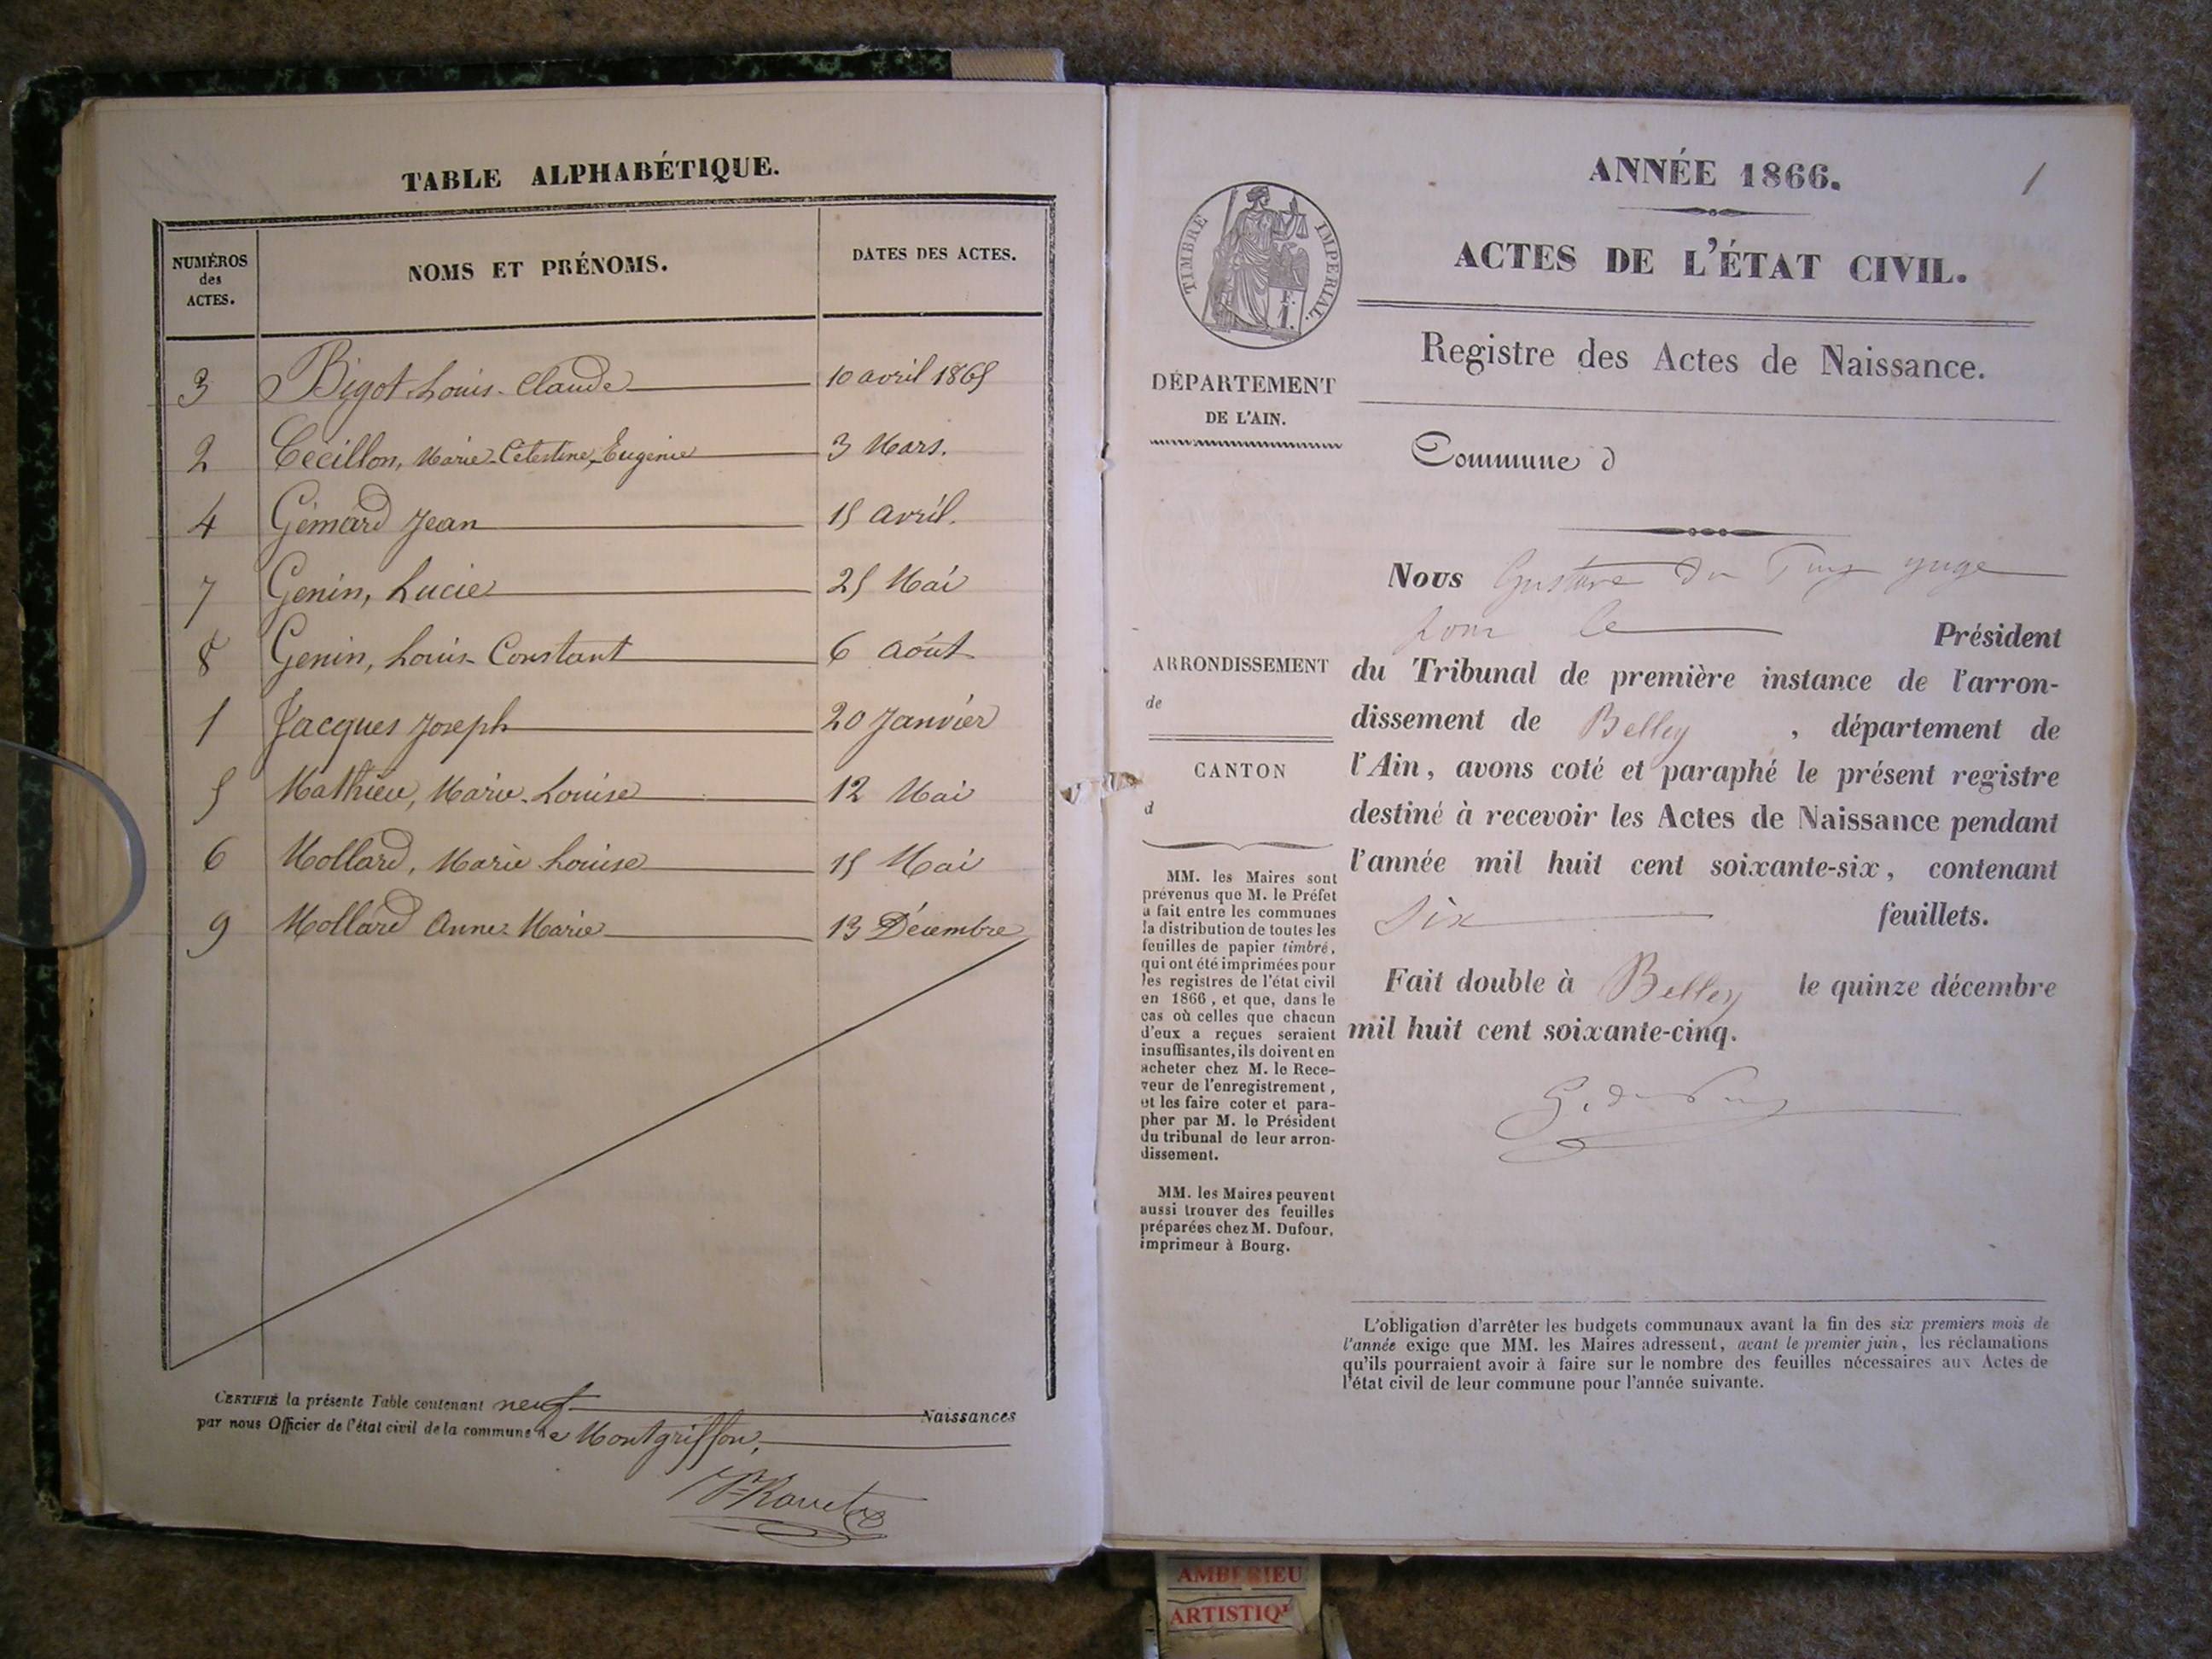 TABLE ALPHABÉTIQUE.
NUMÉROS
des
ACTES.
NOMS ET PRÉNOMS.
DATES DES ACTES.
3 Bigot Louis-Claude 10 avril 1865
2 Cécillon, Marie-Célestine, Eugénie 3 Mars.
4 Gémard Jean 15 avril.
7 Genin, Lucie 25 Mai
8 Genin, Louis-Constant 6 août
1 Jacques Joseph 20 Janvier
5 Mathieu, Marie-Louise 12 Mai
6 Mollard, Marie Louise 15 Mai
9 Mollard Anne-Marie 13 Décembre
CERTIFIÉ la présente Table contenant neuf Naissances
par nous Officier de l'état civil de la commune de Montgriffon,
ANNÉE 1866.
1
TIMBRE IMPÉRIAL.
ACTES DE L'ÉTAT CIVIL.
Registre des Actes de Naissance.
DÉPARTEMENT
DE L'AIN.
Commune d
ARRONDISSEMENT
de
CANTON
d
MM. les Maires sont
prévenus que M. le Préfet
a fait entre les communes
la distribution de toutes les
feuilles de papier timbré,
qui ont été imprimées pour
les registres de l'état civil
en 1866, et que, dans le
cas où celles que chacun
d'eux a reçues seraient
insuffisantes, ils doivent en
acheter chez M. le Rece-
veur de l'enregistrement,
et les faire coter et para-
pher par M. le Président
du tribunal de leur arron-
dissement.
MM. les Maires peuvent
aussi trouver des feuilles
préparées chez M. Dufour,
imprimeur à Bourg.
Nous Gustave du Puy juge
pour le Président
du Tribunal de première instance de l'arron-
dissement de Belley, département de
l'Ain, avons coté et paraphé le présent registre
destiné à recevoir les Actes de Naissance pendant
l'année mil huit cent soixante-six, contenant
six feuillets.
Fait double à Belley le quinze décembre
mil huit cent soixante-cinq.
G. du Puy
L'obligation d'arrêter les budgets communaux avant la fin des six premiers mois de
l'année exige que MM. les Maires adressent, avant le premier juin, les réclamations
qu'ils pourraient avoir à faire sur le nombre des feuilles nécessaires aux Actes de
l'état civil de leur commune pour l'année suivante.
AMBERIEU
ARTISTIQ